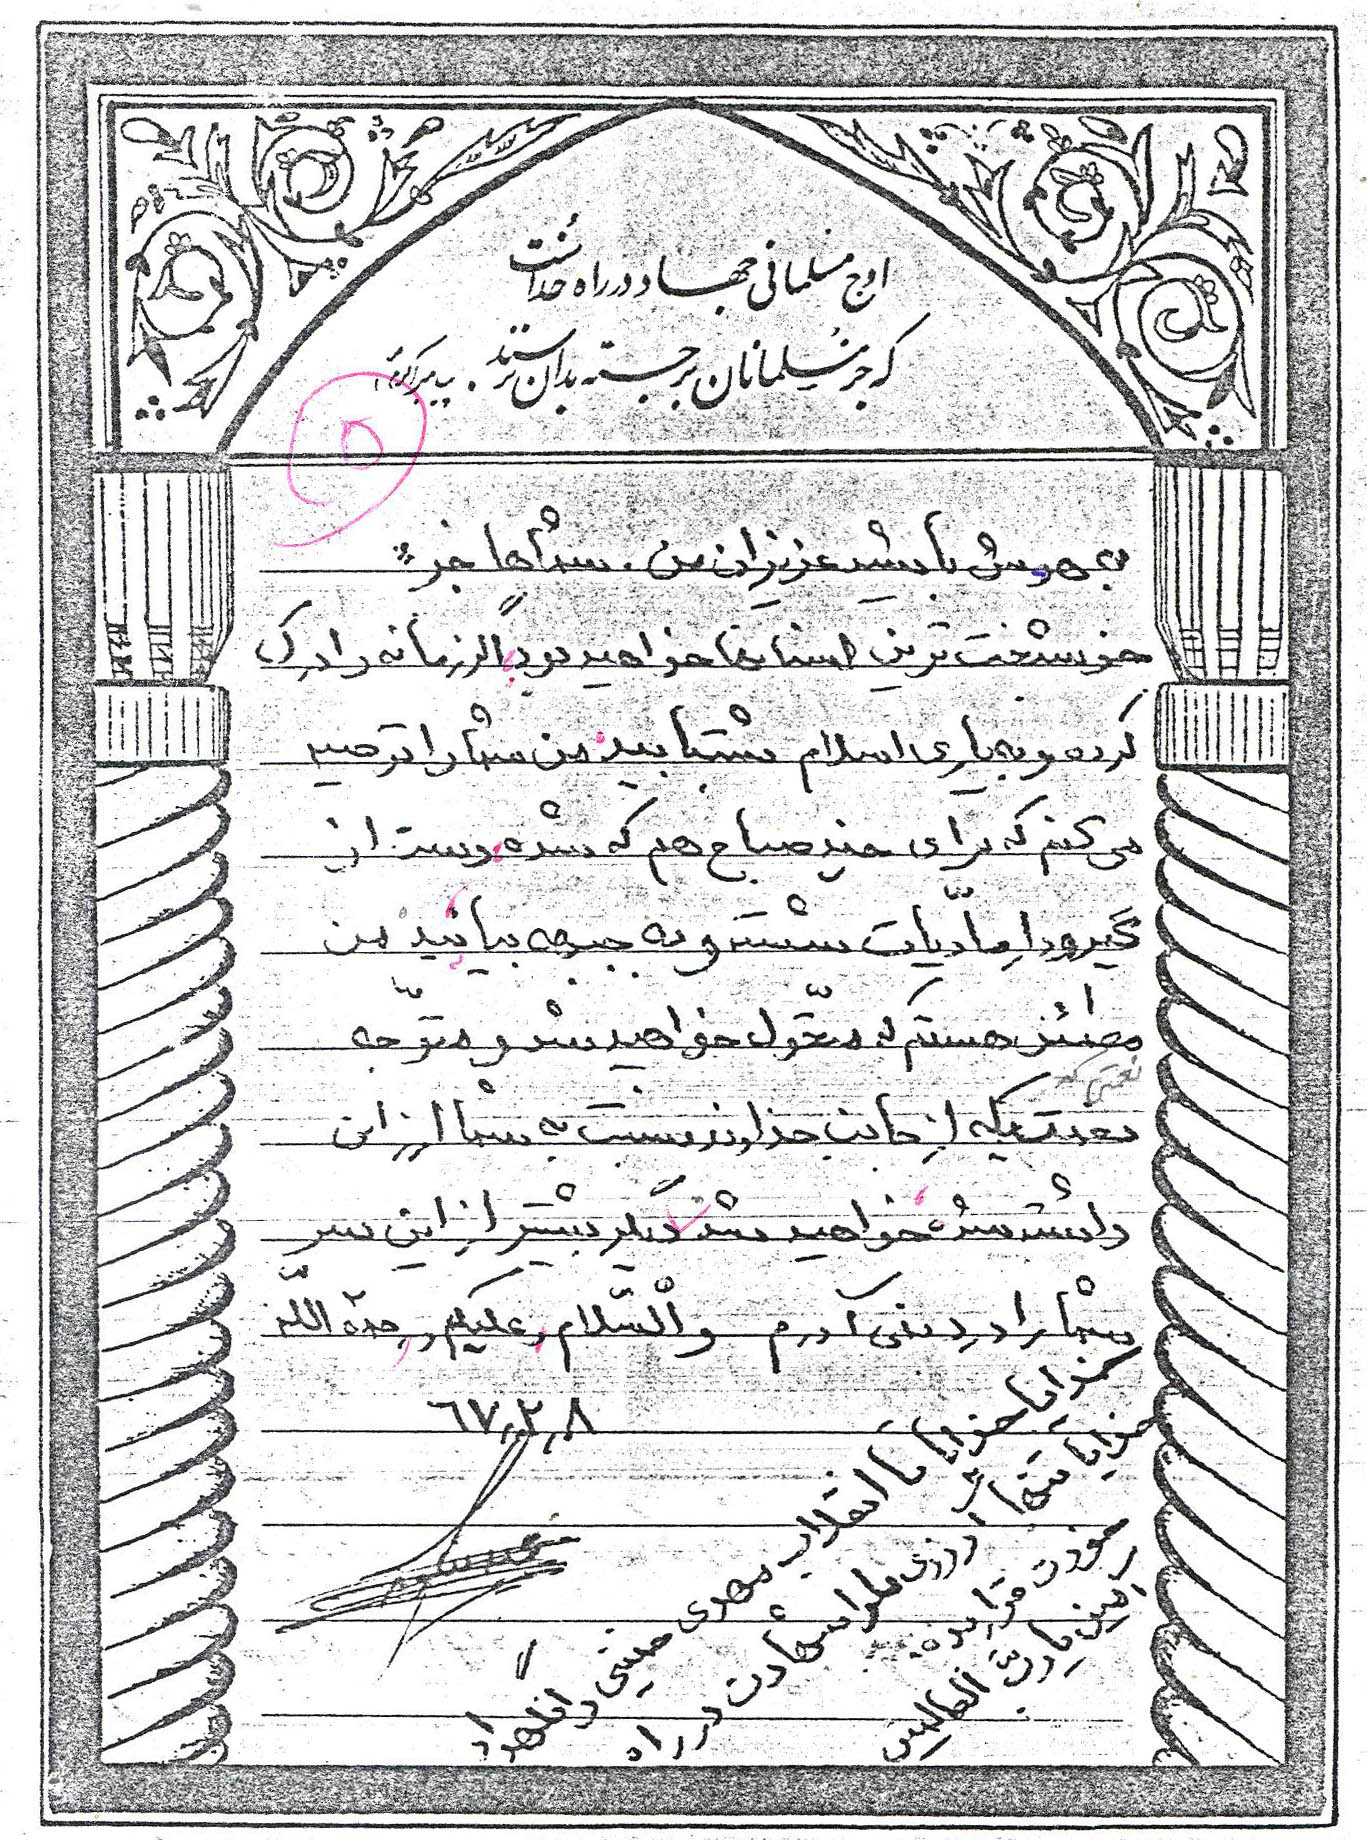 اوج مسلمانی جهاد در راه خداست
که جز مسلمانان برجسته بدان نرسند. پیامبر اکرم
۵
به هوش باشید عزیزان من. شماها جزء
خوشبخت ترین انسانها خواهید بود اگر زمانه را درک
کرده و به یاری اسلام بشتابید من شما را توصیه
می کنم که برای چند صباح هم که شده دست از
گیرودار مادّیات شسته و به جبهه بیائید من
مطمئنم هستم که متحّول خواهید شد و متوّجه
نعمتی که
نعمتیکه از جانب خداوند نسبت به شما ارزانی
داشته شده خواهید شد دیگر بیشتر از این سر
شما را درد نمی آورم والسّلام علیکم و رحمة اللّه
۶۷,۲,۸
خدایا خدایا تا انقلاب مهدی خمینی را نگهدار
خدایا تنها آرزوی ما را شهادت در راه
خودت قرار بده
آمین یا ربّ العالمین